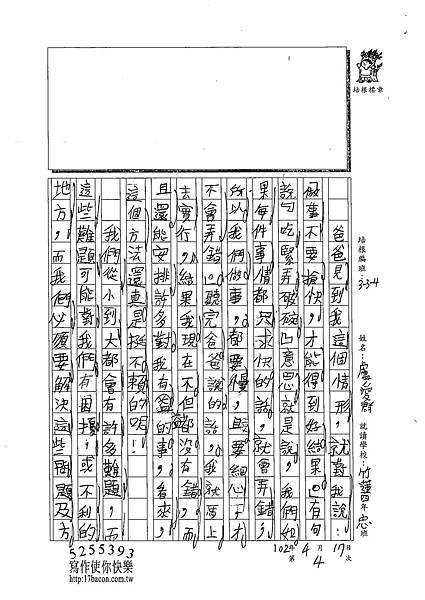 培根楷章
培根編班：334 姓名： 就讀學校：竹蓮 年忠班
102年4月17日
第4次
爸爸見到我這個情形，就對我說：
做事不要搶快，才能得到好結果。」有句
說句吃緊弄破碗」意思就是說，我們如
果每件事情都只求快的話，就會弄錯，
所以我們做事，都要慢，且要細心，才
不會弄錯。」聽完爸爸說的話，我就馬上
去實行，結果我現在不但都沒有錯，而
且還能安排許多對我有益的事，看來，
這個方法還真是挺不賴的呢！
我們從小到大都會有許多難題，而
這些難題可能對我們有困擾，或不利的
地方，而我們必須要解決這些問題及方
5255393
寫作使你快樂
http://17bacon.com.tw